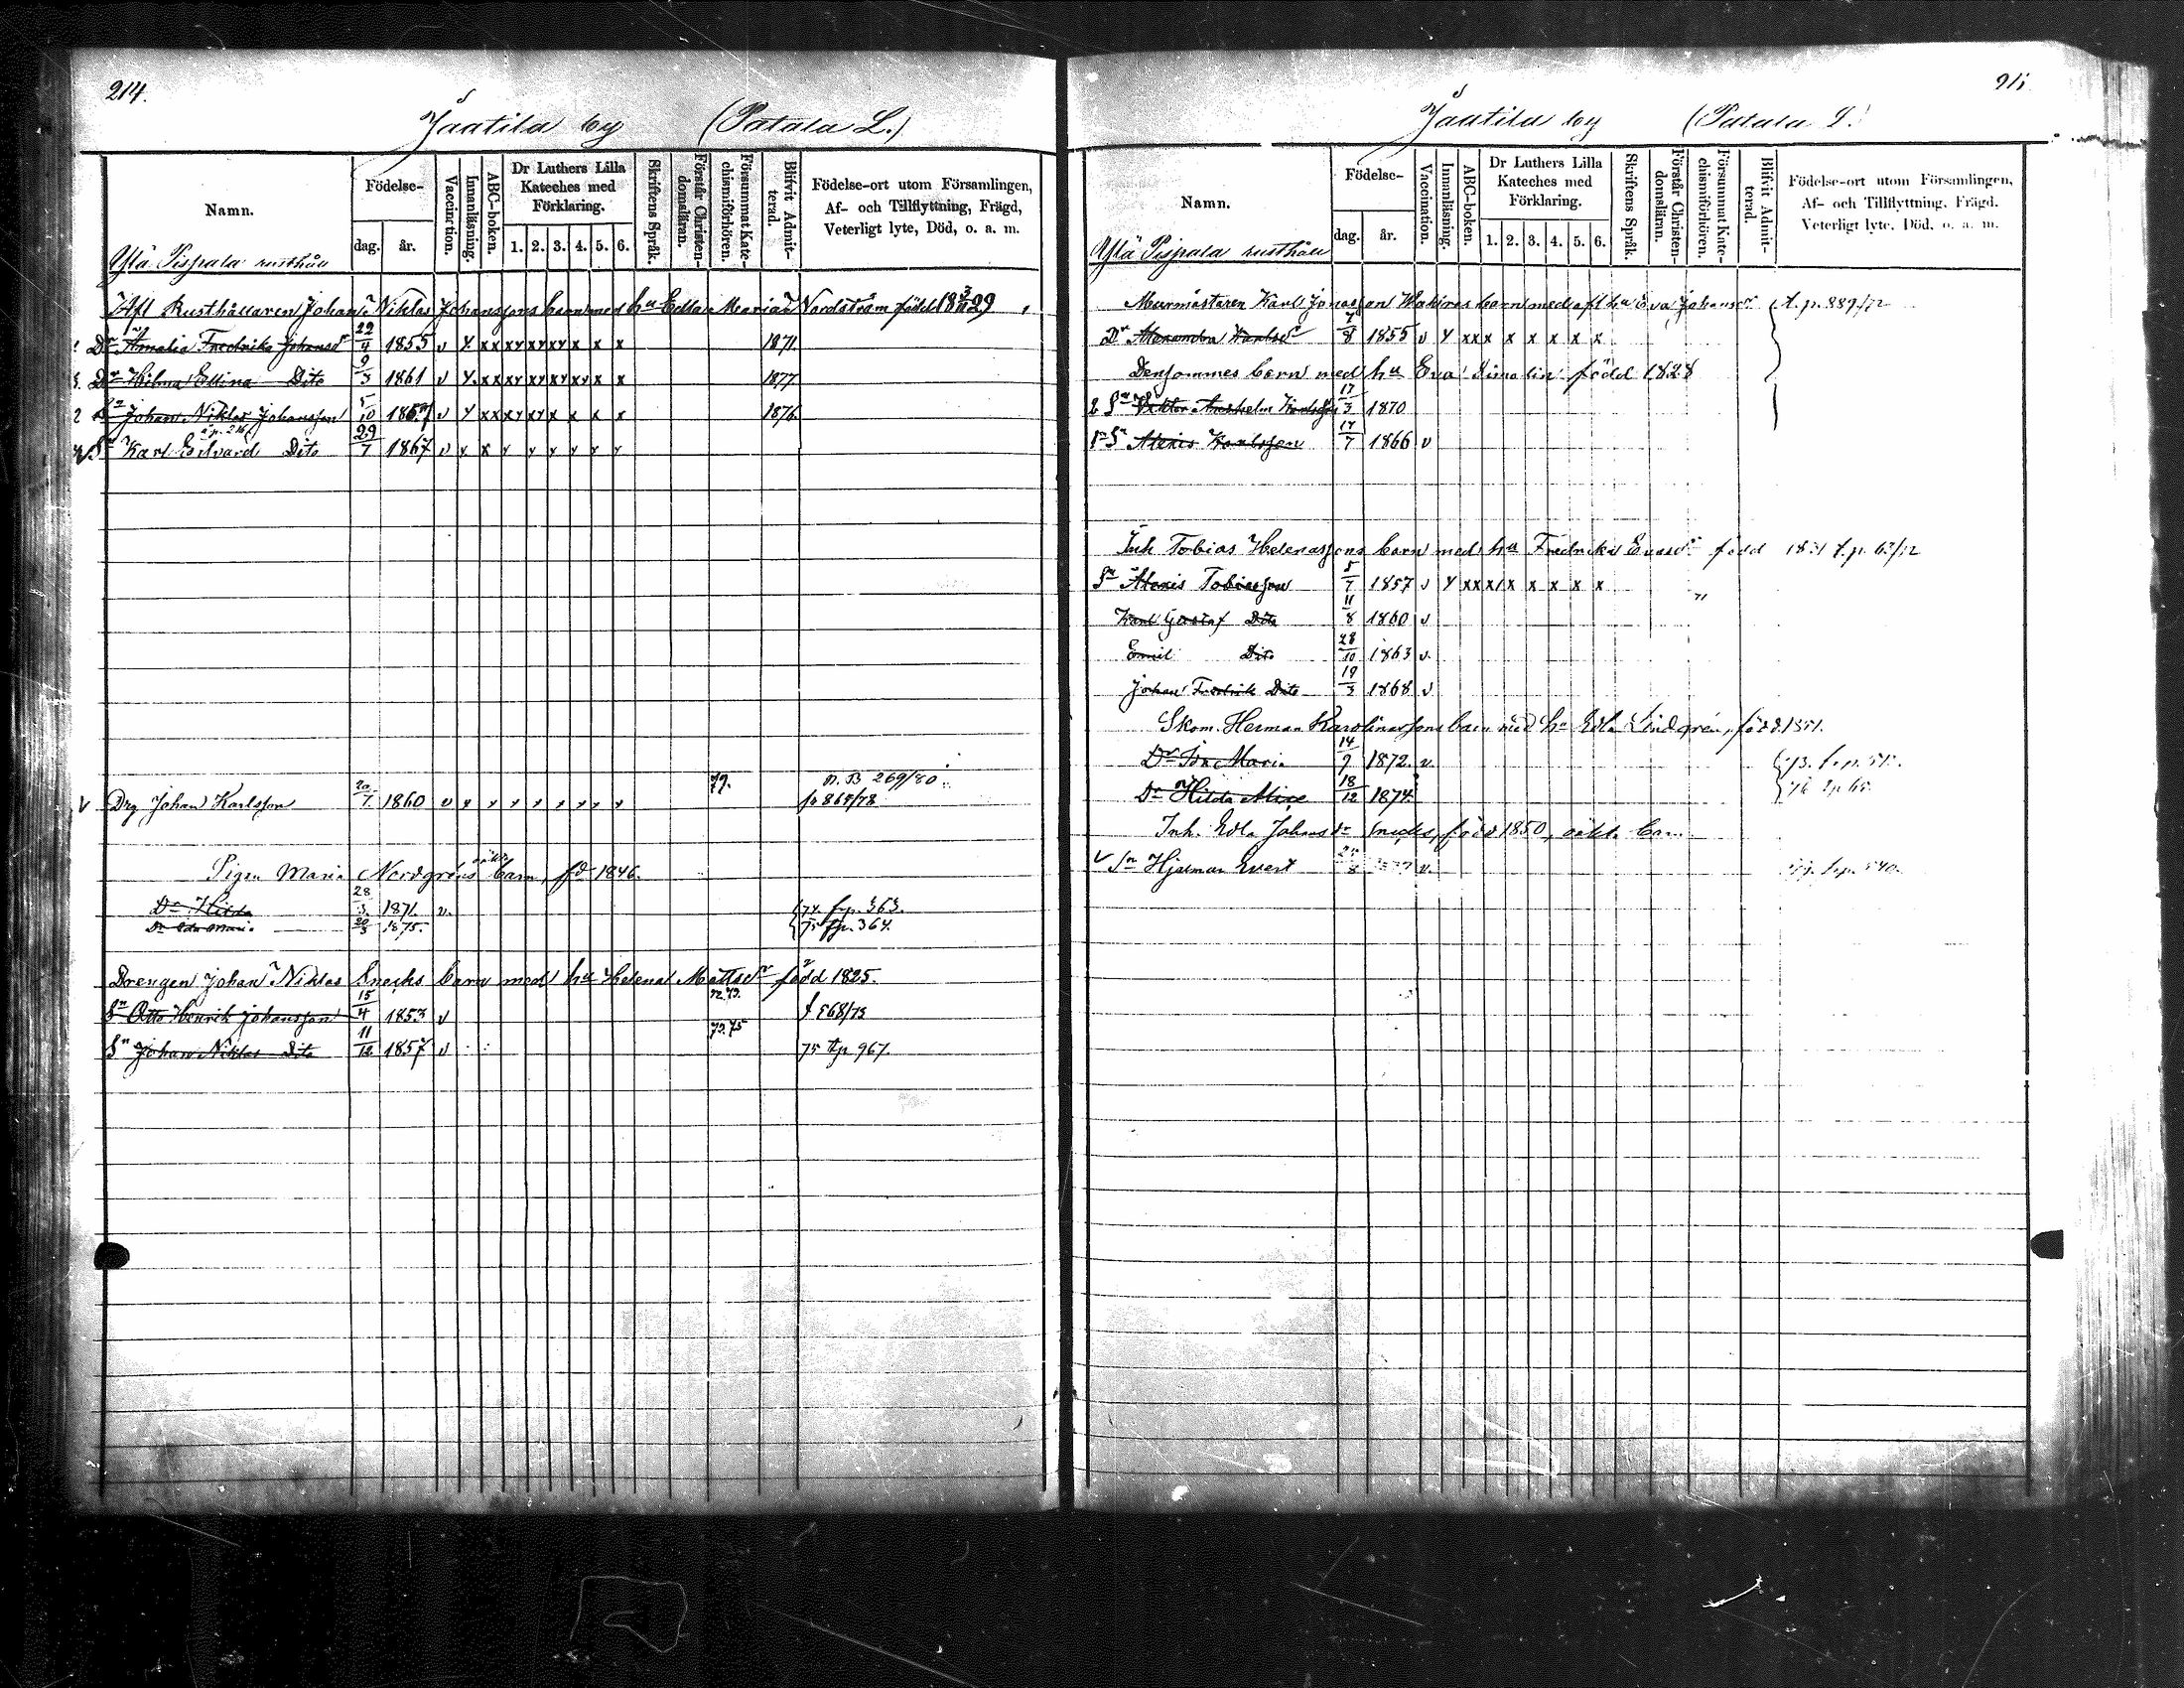 214.
Jaatila by (Patala L.)
Namn.
Födelse-
dag. år.
Vaccinction.
Innanläsning.
ABC-boken.
Dr Luthers Lilla Kateches med Förklaring.
1. 2. 3. 4. 5. 6.
Skriftens Språk.
Förstår Christen-domsläran.
Försummat Kate-chismiförhören.
Blifvit Admit-terad.
Födelse-ort utom Församlingen,
Af- och Tillflyttning, Frägd,
Veterligt lyte, Död, o. a. m.
Ylä Pispala rusthåll
Aft Rusthållaren Johan Niklas Johanssons barn med hu Edla Maria Nordström född 18 3/11 29
1 Dr Amalia Fredrika Johansdr 22/4 1855 v Y x x x x x x x x 1871
3. Dr Wilma Ellina Dito 9/3 1861 v Y x x x x x x x x 1877
2 Sn Johan Niklas Johansson 5/10 1857 v Y x x x x x x x x 1876
Sn Karl Edvard Dito 29/7 1867 v x x x x x x x x
n. B 269/80
v Drg Johan Karlsson 20/7 1860 v x x x x x x x x 79. fr 864/78
Pigan Maria Nordgréns oäkta barn, fd 1846.
Dr Hilda 28/3 1871. v. 74. frp. 363.
Dr Ida Maria 20/3 1875. 75 fp. 364.
Drengen Johan Niklas Knecks barn med hu Helena Mattsdr född 1825.
Sn Otto Henrik Johansson 15/4 1853 v 72.73. f 568/73
Sn Johan Niklas Dito 11/12 1857 v 73.75 75 tp 967.
215
Jaatila by (Patala L.)
Namn.
Födelse-
dag. år.
Vaccination.
Innanläsning.
ABC-boken.
Dr Luthers Lilla Kateches med Förklaring.
1. 2. 3. 4. 5. 6.
Skriftens Språk.
Förstår Christen-domsläran.
Försummat Kate-chismiförhören.
Blifvit Admit-terad.
Födelse-ort utom Församlingen,
Af- och Tillflyttning. Frägd.
Veterligt lyte, Död, o. a. m.
Ylä Pispala rusthåll
Murmästaren Karl Jonasson barn med aft hu Eva Johansdr t. p. 889/72
Dr Alexandra Karlsdr 7/8 1855 v Y x x x x x x x x
Densammes barn med hu Eva Limalin född 1828
2 Sn Viktor Anshelm Karlsson 17/3 1870
1 Sn Alexis Karlsson 17/7 1866 v
Inh Tobias Helenassons barn med hu Fredrika Evasdr född 1831 t.p. 63/72
Sn Alexis Tobiasson 5/7 1857 v Y x x x x x x x x "
Karl Gustaf Dito 11/8 1860 v
Emil Dito 28/10 1863 v.
Johan Fredrik Dito 19/3 1868 v
Skom. Herman Karolinassons barn med hu Edla Lindgrén, född 1851.
Dr Ida Maria 14/9 1872. v.
Dr Hilda Alice 18/12 1874.
Inh. Edla Johansdr Knecks, född 1850, oäkta barn
v Sn Hjalmar Evert 8 v.